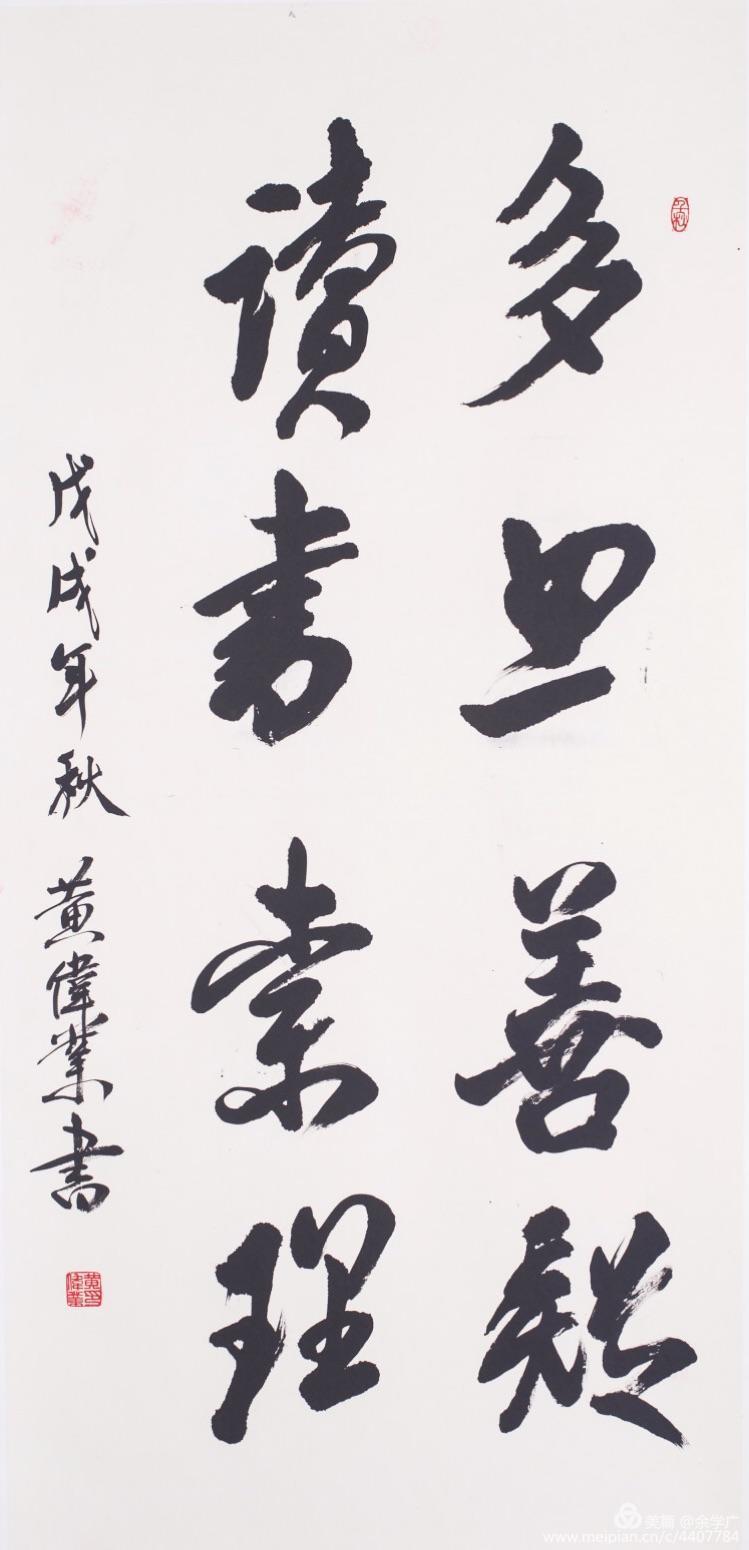 多思善疑
讀書索理
戊戌年秋 黄偉業書
黄偉業印
美篇 @余学广
www.meipian.cn/c/4407784